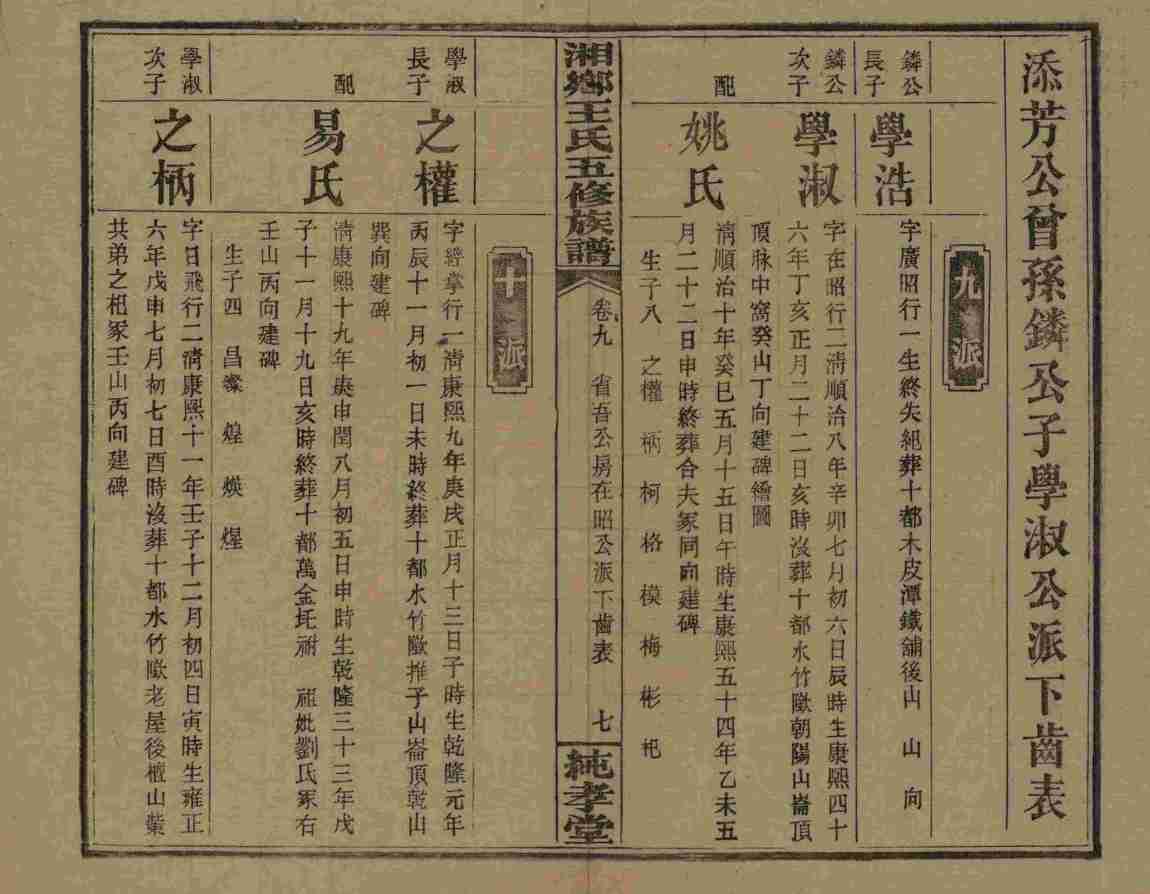 添芳公曾孫鏻公子學淑公派下齒表
九派
鏻公
長子
學浩
字廣昭行一生終失紀葬十都木皮潭鐵舖後山　山　向
鏻公
次子
學淑
字在昭行二清順治八年辛卯七月初六日辰時生康熙四十
六年丁亥正月二十二日亥時沒葬十都水竹隞朝陽山崙頂
頂脉中窩癸山丁向建碑繪圖
配
姚氏
清順治十年癸巳五月十五日午時生康熙五十四年乙未五
月二十二日申時終葬合夫冢同向建碑
生子八　之權　柄　柯　格　模　梅　彬　杞
湘鄉王氏五修族譜
卷九　省吾公房在昭公派下齒表　七
純孝堂
十派
學淑
長子
之權
字經掌行一清康熙九年庚戌正月十三日子時生乾隆元年
丙辰十一月初一日未時終葬十都水竹隞推子山崙頂乾山
巽向建碑
配
易氏
清康熙十九年庚申閏八月初五日申時生乾隆三十三年戊
子十一月十九日亥時終葬十都萬金坵祔　祖妣劉氏冢右
壬山丙向建碑
生子四　昌燦　煌　煐　煋
學淑
次子
之柄
字日飛行二清康熙十一年壬子十二月初四日寅時生雍正
六年戊申七月初七日酉時沒葬十都水竹隞老屋後檀山葉
共弟之杞冢壬山丙向建碑